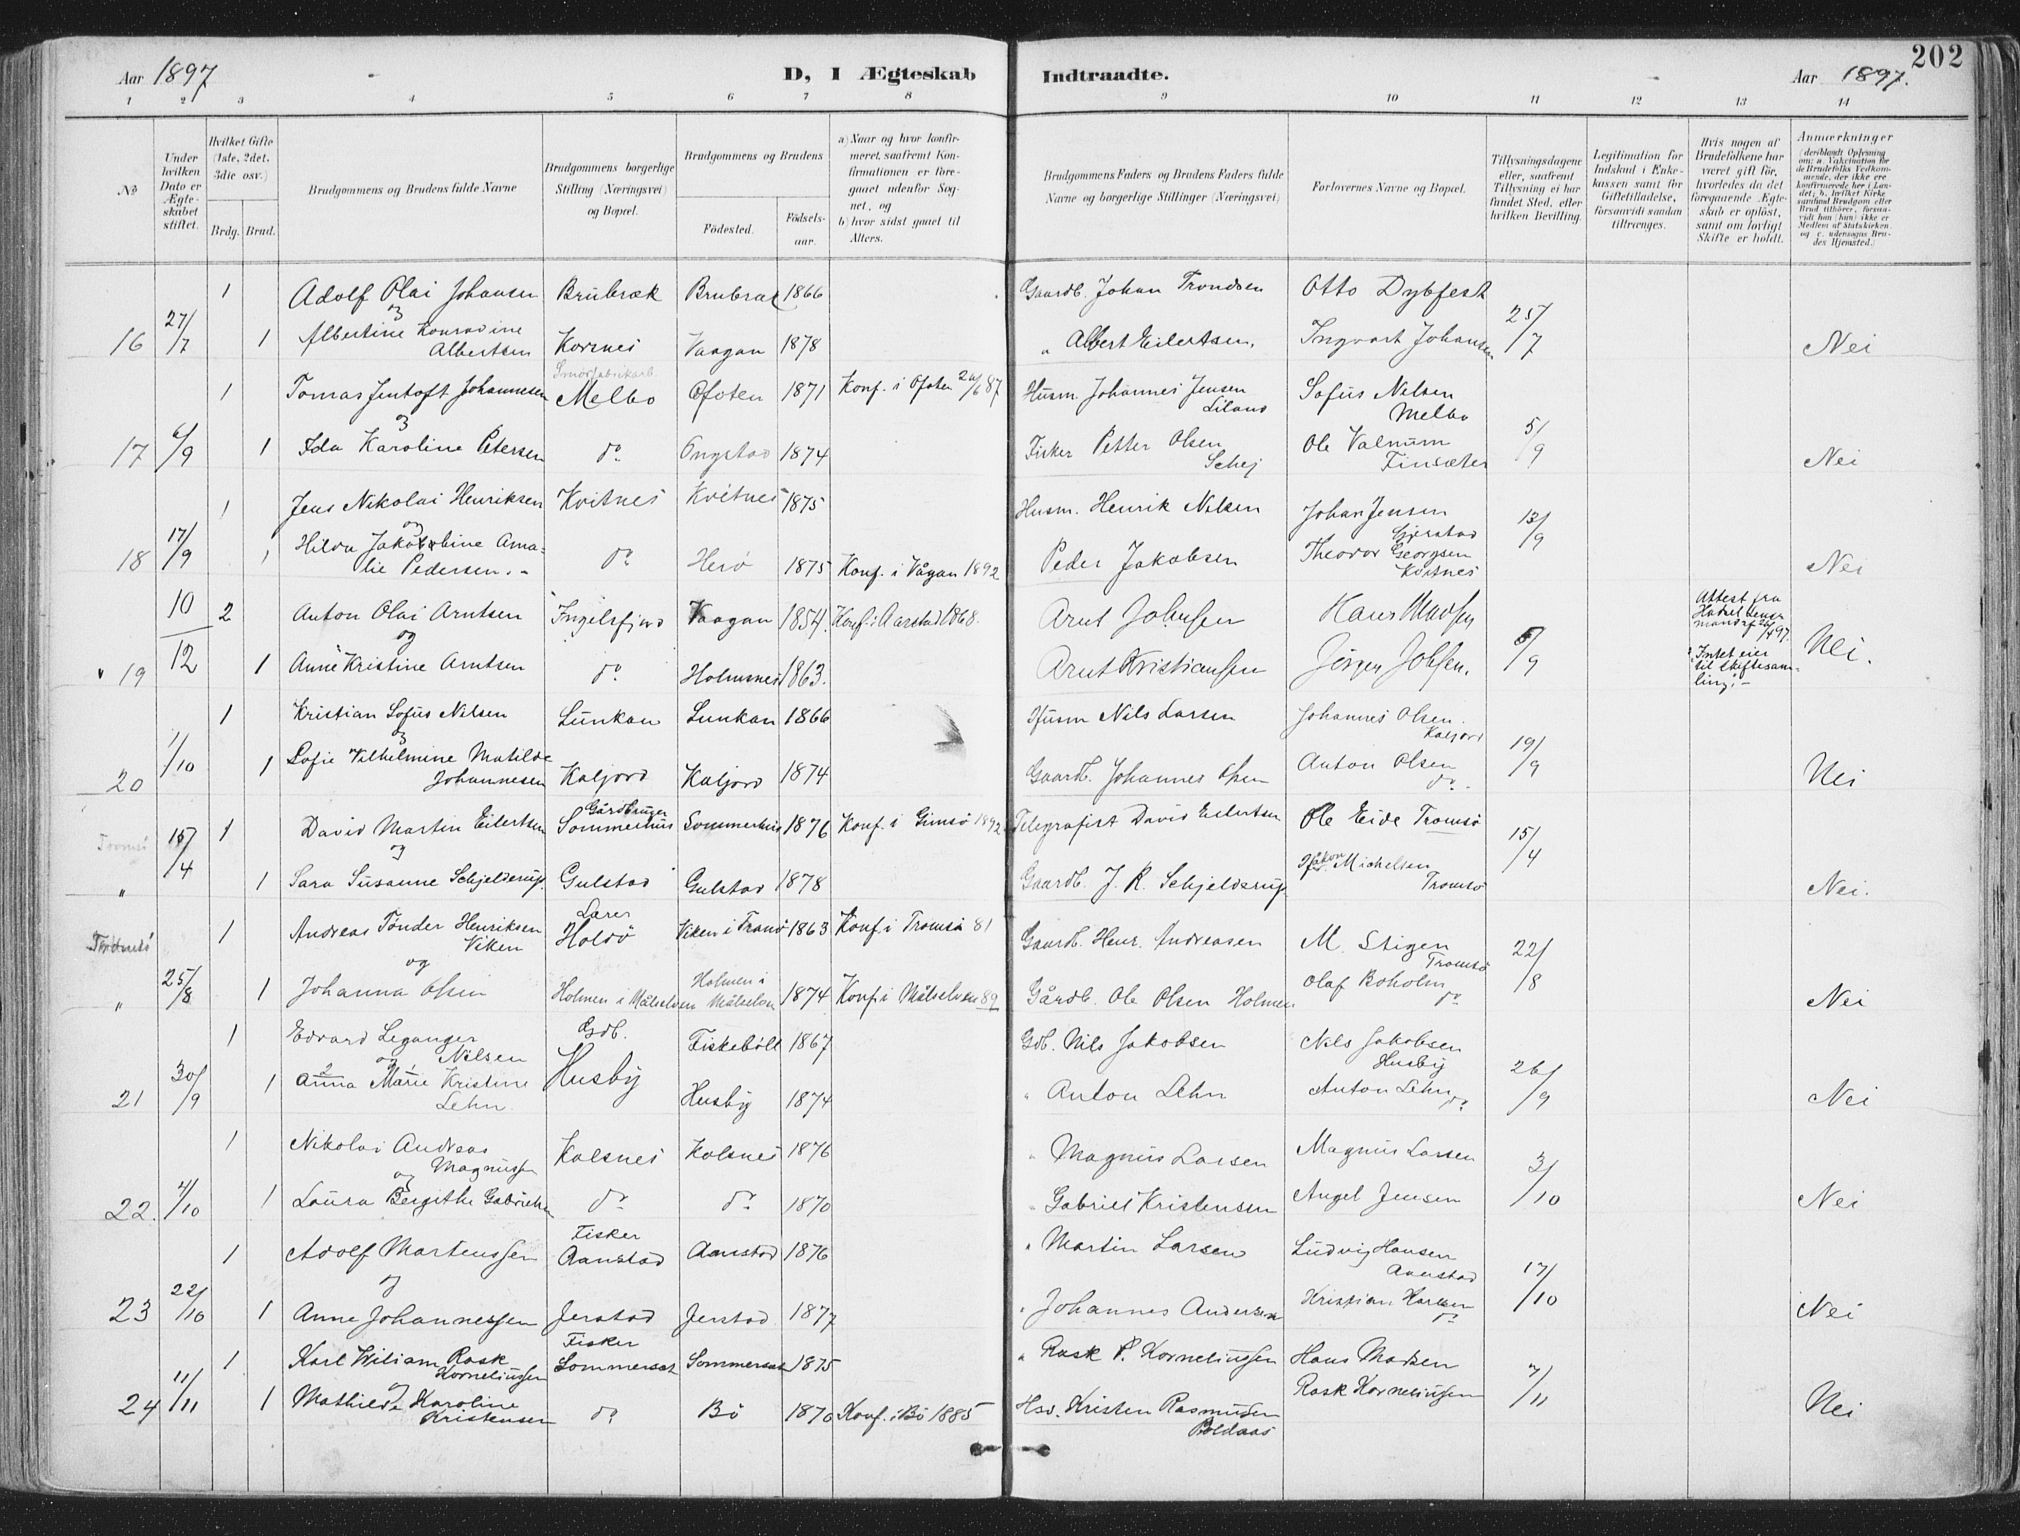 Aar 1897
D, I Ægteskab Indtraadte.
Aar 1897.
202
1 2 3 4 5 6 7 8 9 10 11 12 13 14
№
Under hvilken Dato er Ægteskabet stiftet.
Hvilket Gifte (1ste, 2det, 3die osv.)
Brdg. Brud.
Brudgommens og Brudens fulde Navne
Brudgommens borgerlige Stilling (Næringsvei) og Bopæl.
Brudgommens og Brudens
Fødested.
Fødselsaar.
a) Naar og hvor konfirmeret, saafremt Konfirmationen er foregaaet udenfor Sognet, og
b) hvor sidst gaaet til Alters.
Brudgommens Faders og Brudens Faders fulde Navne og borgerlige Stillinger (Næringsvei)
Forlovernes Navne og Bopæl.
Tillysningsdagene eller, saafremt Tillysning ei har fundet Sted, efter hvilken Bevilling.
Legitimation for Indskud i Enkekassen samt for Giftetilladelse, forsaavidt saadan tiltrænges.
Hvis nogen af Brudefolkene har været gift før, hvorledes da det foregaaende Ægteskab er opløst, samt om lovligt Skifte er holdt.
Anmærkninger
(deriblandt Oplysning om: a. Vakcination for de Brudefolks Vedkommende, der ikke ere konfirmerede her i Landet; b. hvilket Kirkesamfund Brudgom eller Brud tilhører, forsaavidt han (hun) ikke er Medlem af Statskirken, og c. udensogns Brudes Hjemsted.)
1 Adolf Olai Johansen Brubræk Brubræk 1866 Gaardb. Johan Trondsen Otto Dybfest
og
16 27/7 1 Albertine Konradine Albertsen Korsnes Vaagan 1878 " Albert Eilertsen. Ingvart Johansen 25/7 Nei
Smörfabrikarb.
1 Tomas Jentoft Johannesen Melbo Ofoten 1871 Konf. i Ofoten 26/6 87 Husm. Johannes Jensen Liland Sofus Nilsen Melbo
og
17 6/9 1 Ida Karoline Petersen do Ongstad 1874 Fisker Petter Olsen Schej Ole Valnum Finsæter 5/9 Nei
1 Jens Nikolai Henriksen Kvitnes Kvitnes 1875 Husm. Henrik Nilsen Johan Jensen Gjerstad
og
18 17/9 1 Hilda Jakobine Amalie Pedersen.- do Herö 1875 Konf. i Vågan 1892 Peder Jakobsen Theodor Georgsen Kvitnes 13/9 Nei
10 2 Anton Olai Arntsen Ingelsfjord Vaagan 1854. Konf. i Aarstad 1868. Arnt Johnsen Hans Madsen
og
19 12 1 Anne Kristine Arntsen do Holmsnes 1863. Arnt Kristiansen Jørgen Jobsen. 5/9 Nei.
Attest fra Hadsel Lensmand 26/4 97.
"Intet eier til Skiftesamling".-
1 Kristian Sofus Nilsen Lunkan Lunkan 1866 Husm Nils Larsen Johannes Olsen. Kaljord
og
20 1/10 1 Sofie Vilhelmine Matilde Johannesen Kaljord Kaljord 1874 Gaardb. Johannes Olsen Anton Olsen do. 19/9 Nei
Tromsö 15/4 1 David Martin Eilertsen Gårdbruger Sommerhus Sommerhus 1876 Konf. i Gimsö 1892 Telegrafist David Eilertsen Ole Eide Tromsö
og
" 1 Sara Susanne Schjelderup. Gulstad Gulstad 1878 Gaardb. J. R. Schjelderup Håkon Michelsen Tromsö 15/4 Nei.
Tromsö 1 Andreas Tönder Henriksen Viken Lærer Holdö Viken i Tranö 1863 Konf. i Tromsö 81 Gaardb. Henr. Andreasen M. Stigen Tromsö
og
" 25/8 1 Johanna Olsen Holmen i Målselven Holmen i Målselven 1874 Konf. i Målselven 89 Gårdb. Ole Olsen Holmen Olaf Boholm do 22/8 Nei
1 Edvard Leganger Nilsen Gdb. Husby Fiskebölt 1867 Gdb. Nils Jakobsen Nils Jakobsen Husby
og
21 30/9 1 Anna Marie Kristine Lehn. Husby 1874 " Anton Lehn Anton Lehn do 26/9 Nei
1 Nikolai Andreas Magnussen Kalsnes Kalsnes 1876 " Magnus Larsen Magnus Larsen
og
22. 4/10 1 Laura Bergithe Gabrielsen do do 1870 " Gabriel Kristensen Angel Jensen 3/10 Nei
1 Adolf Martenssen Fisker Aanstad Aanstad 1876 " Martin Larsen Ludvig Hansen Aanstad
og
23 22/10 1 Anne Johannessen Jerstad Jerstad 1877 " Johannes Andersen Kristian Hansen do 17/10 Nei
1 Karl Wiliam Rask Kornelinssen Fisker Sommersæt Sommersæt 1875 " Rask P. Kornelinssen Hans Madsen
og
24 11/11 1 Mathilde Karoline Kristensen do Bö 1870 Konf. i Bö 1885 Hsv. Kristen Rasmusen Boldaas Rask Kornelinssen 7/11 Nei